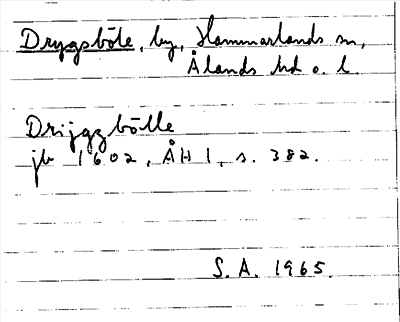 Dryggsböte, by, Hammarlands sn,
Ålands hd o. l.
Drijggbölle
jb 1602, ÅH 1, s. 382.
S. A. 1965.